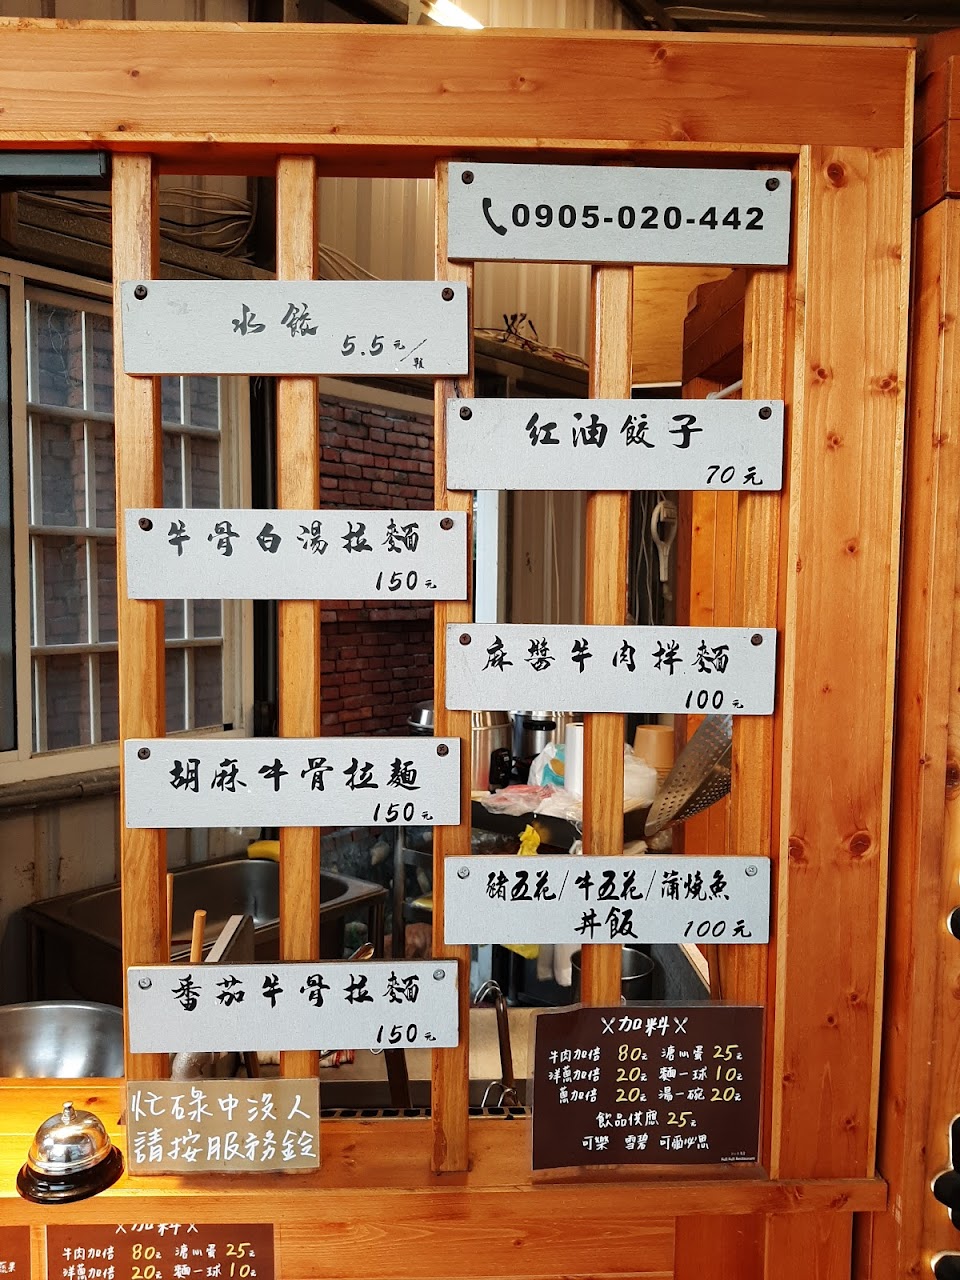 0905-020-442
水餃
5.5元/顆
紅油餃子
70元
牛骨白湯拉麵
150元
麻醬牛肉拌麵
100元
胡麻牛骨拉麵
150元
豬五花/牛五花/蒲燒魚
丼飯 100元
番茄牛骨拉麵
150元
忙碌中沒人
請按服務鈴
加料
牛肉加倍 80元 溏心蛋 25元
洋蔥加倍 20元 麵一球 10元
蔥加倍 20元 湯一碗 20元
飲品供應 25元
可樂 雪碧 可爾必思
加料
牛肉加倍 80元 溏心蛋 25元
洋蔥加倍 20元 麵一球 10元